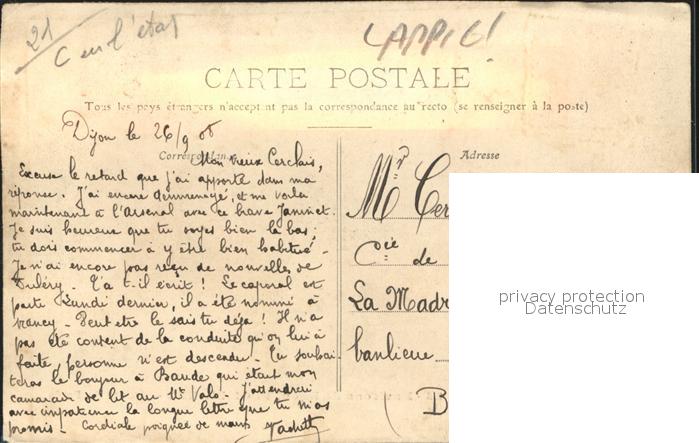 21
C en l'état
CARTE POSTALE
Tous les pays étrangers n'acceptent pas la correspondance au recto (se renseigner à la poste)
Dijon le 26/9 08
Correspondance
Mon vieux Cerclais,
Excuse le retard que j'ai apporté dans ma
réponse. J'ai encore déménagé, et me voilà
maintenant à l'Arsenal avec ce brave Janinet.
Je suis heureux que tu soyes bien la bas;
tu dois commencer à y être bien habitué -
Je n'ai encore pas reçu de nouvelles de
T'a t-il écrit! Le caporal est
parti Lundi dernier, il a été nommé à
Nancy - Peut etre le sais tu déja! Il n'a
pas été content de la conduite qu'on lui a
faite, personne n'est descendu - Tu souhai-
teras le bonjour à Baude qui était mon
camarade de lit au - J'attendrai
avec impatience la longue lettre que tu m'as
promis - Cordiale poignée de mains
Adresse
Mr Cer
Cie de
La Madr
banlieue
(B
privacy protection
Datenschutz